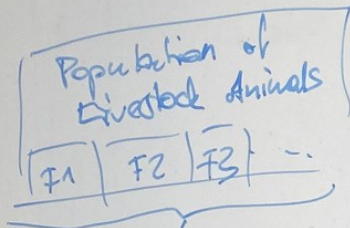 Population of
Livestock Animals
F1 F2 F3 ...